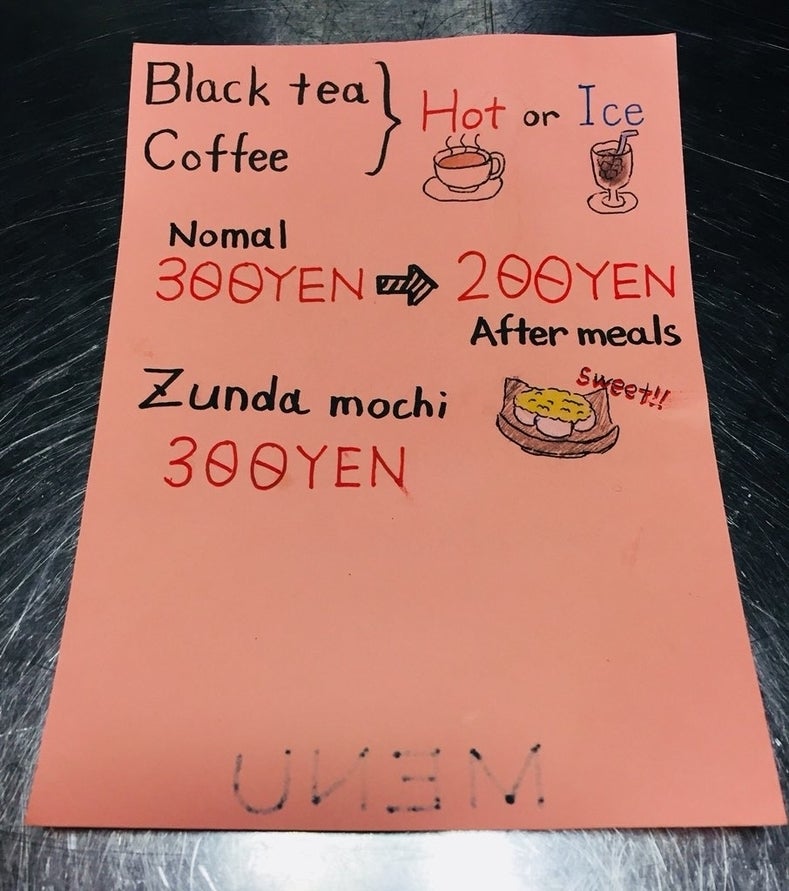 Black tea } Hot or Ice
Coffee
Nomal
300YEN ⇨ 200YEN
After meals
Zunda mochi
sweet!!
300YEN
MENU